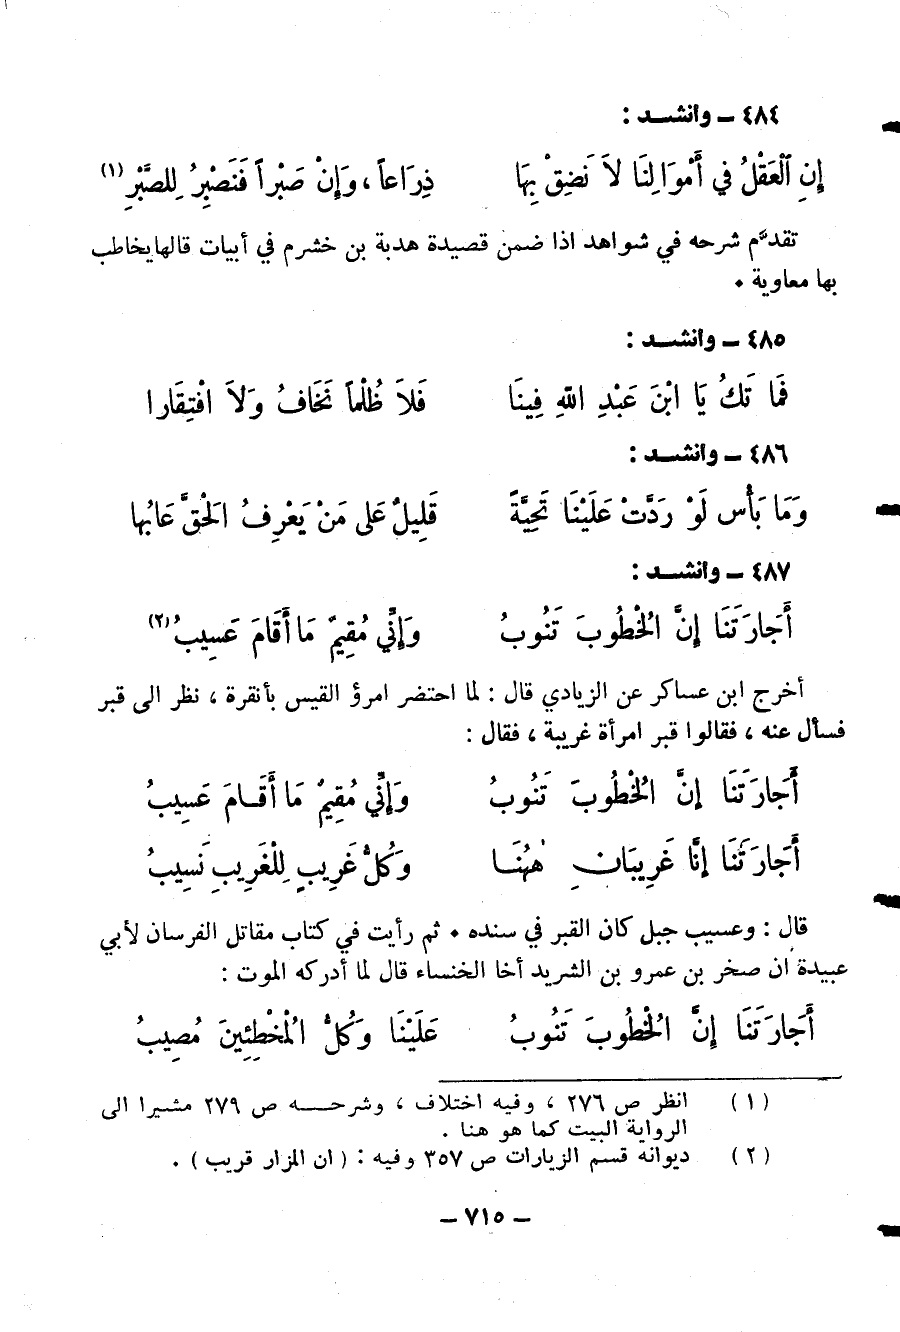 ٤٨٤ ــ وانشـــد :
إِنِ ٱلْعَقْلُ في أَمْوَالِنَا لاَ نَضِقْ بِهَا ذِرَاعاً ، وَإِنْ صَبْراً فَنَصْبِرُ لِلصَّبْرِ (١)
تقدَّم شرحه في شواهد اذا ضمن قصيدة هدبة بن خشرم في أبيات قالها يخاطب
بها معاوية ٠
٤٨٥ ــ وانشـــد :
فَما تَكُ يَا ابْنَ عَبْدِ اللهِ فِينَا فَلاَ ظُلْماً نَخَافُ وَلاَ افْتِقَارا
٤٨٦ ــ وانشـــد :
وَمَا بَأْس لَوْ رَدَّتْ عَلَيْنَا تَحِيَّةً قَلِيلٌ عَلى مَنْ يَعْرِفُ الحَقَّ عَابُها
٤٨٧ ــ وانشـــد :
أَجَارَتَنَا إِنَّ الخُطُوبَ تَنُوبُ وَإِنِّي مُقِيمٌ مَا أَقَامَ عَسِيبُ (٢)
أخرج ابن عساكر عن الزيادي قال : لما احتضر امرؤ القيس بأنقرة ، نظر الى قبر
فسأل عنه ، فقالوا قبر امرأة غريبة ، فقال :
أَجَارَتَنَا إِنَّ الخُطُوبَ تَنُوبُ وَإِنِّي مُقِيمٌ مَا أَقَــامَ عَسِيبُ
أَجَارَتَنَا إِنَّا غَرِيبَانِ هٰهُنَــا وَكُلُّ غَرِيبٍ لِلْغَرِيبِ نَسِيبُ
قال : وعسيب جبل كان القبر في سنده ٠ ثم رأيت في كتاب مقاتل الفرسان لأبي
عبيدة أن صخر بن عمرو بن الشريد أخا الخنساء قال لما أدركه الموت :
أَجَارَتَنَا إِنَّ الخُطُوبَ تَنُوبُ عَلَيْنَا وَكُلُّ المُخْطِئِينَ مُصِيبُ
(١) انظر ص ٢٧٦ ، وفيه اختلاف ، وشرحـــه ص ٢٧٩ مشيرا الى
الرواية البيت كما هو هنا .
(٢) ديوانه قسم الزيارات ص ٣٥٧ وفيه : ( ان المزار قريب ) .
ــ ٧١٥ ــ